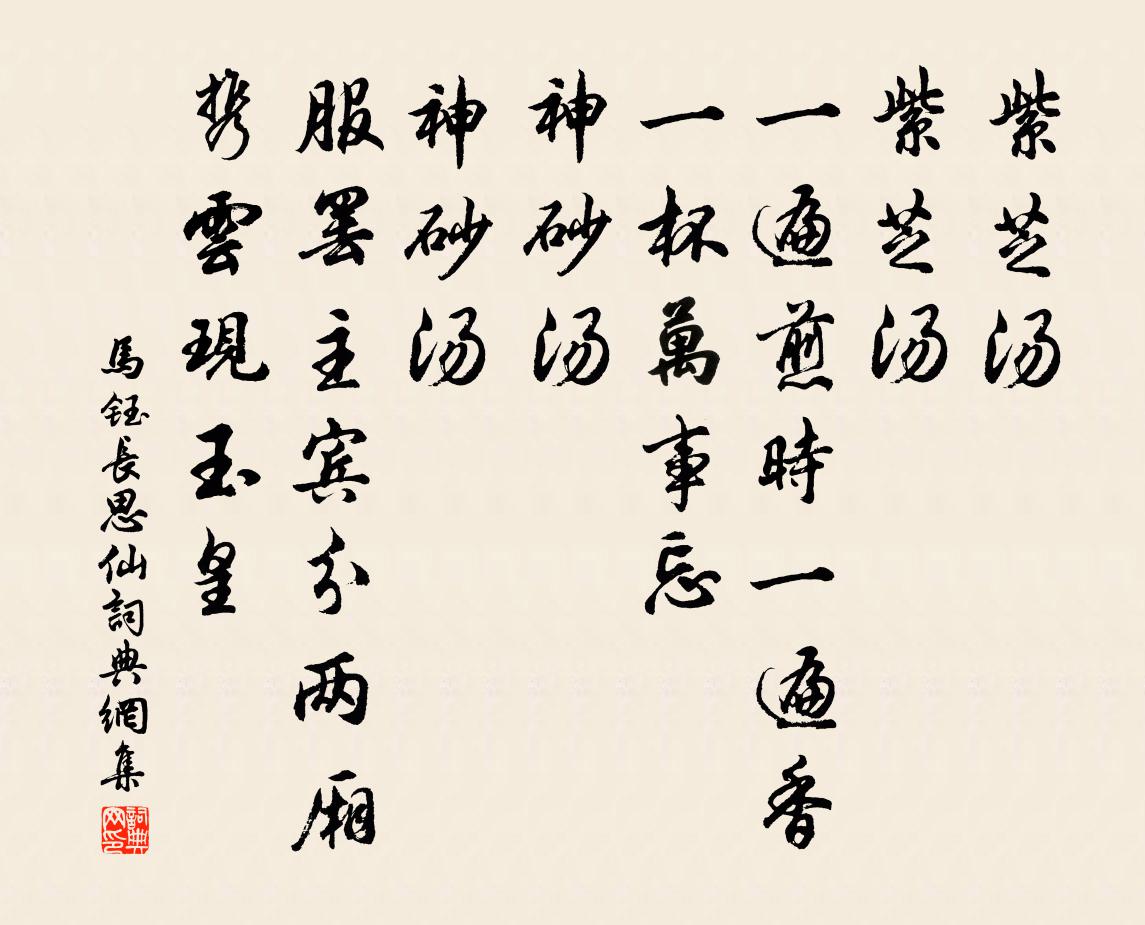 紫芝汤
紫芝汤
一遍煎時一遍香
一杯萬事忘
神砂汤
神砂汤
服罢主宾分两厢
携雲現玉皇
馬鈺長思仙詞典網集
詞典网印